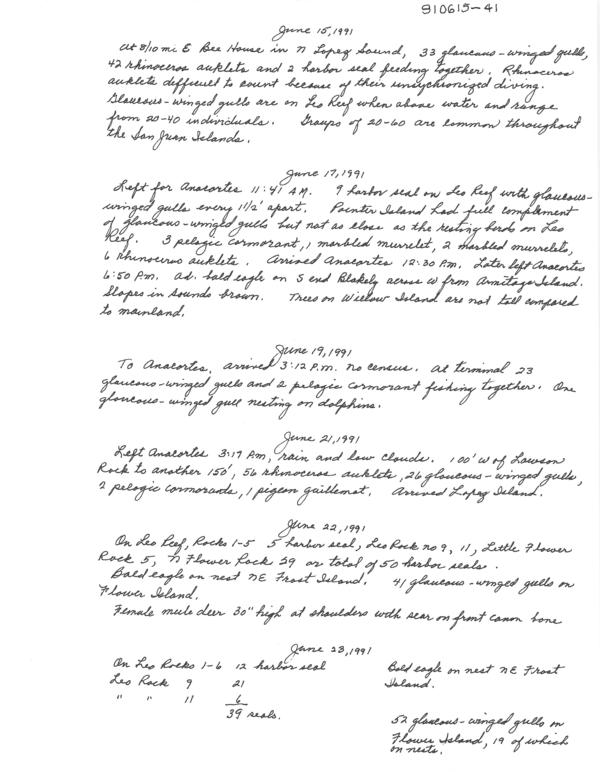 910615-41
June 15, 1991
At 8/10 mi E Bee House in N Lopez Sound, 33 glaucous-winged gulls,
42 rhinoceros auklets and 2 harbor seal feeding together. Rhinoceros
auklets difficult to count because of their unsychronized diving.
Glaucous-winged gulls are on Leo Reef when above water and range
from 20-40 individuals. Groups of 20-60 are common throughout
the San Juan Islands.
June 17, 1991
Left for Anacortes 11:41 A.M. 9 harbor seal on Leo Reef with glaucous-
winged gulls every 1 1/2' apart. Pointer Island had full complement
of glaucous-winged gulls but not as close as the resting birds on Leo
Reef. 3 pelagic cormorant, 1 marbled murrelet, 2 marbled murrelets,
6 rhinoceros auklets. Arrived Anacortes 12:30 P.M. Later left Anacortes
6:50 P.M. ad. bald eagle on S end Blakely across W from Armitage Island.
Slopes in sounds brown. Trees on Willow Island are not tall compared
to mainland.
June 19, 1991
To Anacortes, arrived 3:12 P.M. no census. At terminal 23
glaucous-winged gulls and 2 pelagic cormorant fishing together. One
glaucous-winged gull nesting on dolphins.
June 21, 1991
Left Anacortes 3:17 P.M., rain and low clouds. 100' W of Lawson
Rock to another 150', 56 rhinoceros auklets, 26 glaucous-winged gulls,
2 pelagic cormorants, 1 pigeon guillemot. Arrived Lopez Island.
June 22, 1991
On Leo Reef, Rocks 1-5 5 harbor seal, Leo Rock no 9, 11, Little Flower
Rock 5, N Flower Rock 29 or total of 50 harbor seals.
Bald eagle on nest NE Frost Island. 41 glaucous-winged gulls on
Flower Island.
Female mule deer 30" high at shoulders with scar on front canon bone
June 23, 1991
On Leo Rocks 1-6 12 harbor seal
Leo Rock 9 21
" " 11 6
39 seals.
Bald eagle on nest NE Frost
Island.
52 glaucous-winged gulls on
Flower Island, 19 of which
on nests.